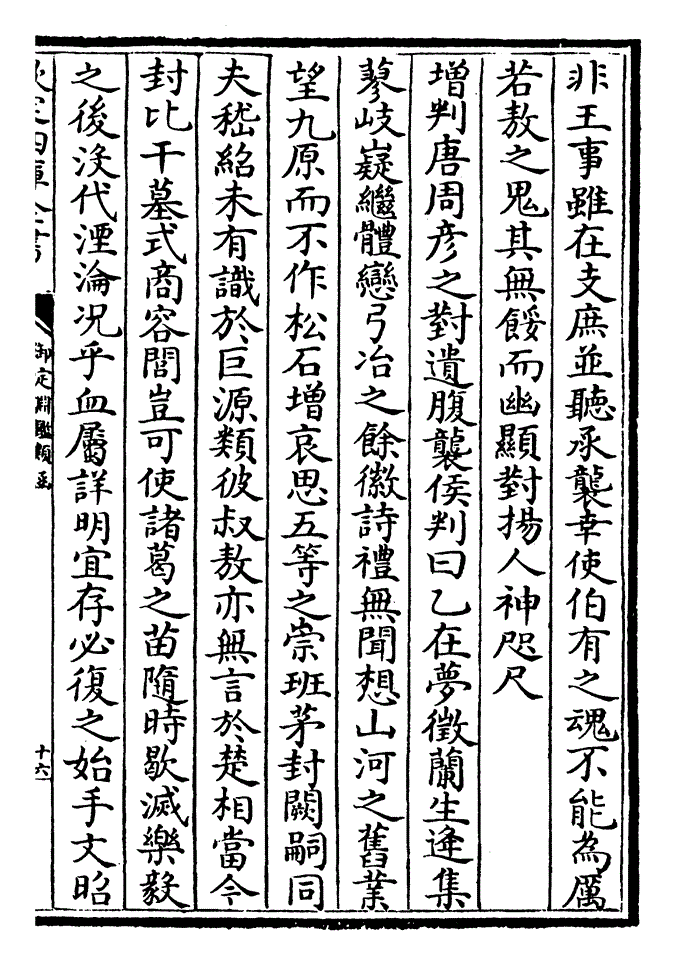 非王事雖在支庶並聽承襲幸使伯有之魂不能為厲
若敖之鬼其無餒而幽顯對揚人神咫尺
增判唐周彦之對遺腹襲侯判曰乙在夢徵蘭生逢集
蓼岐嶷繼體戀弓冶之餘徽詩禮無聞想山河之舊業
望九原而不作松石增哀思五等之崇班茅封闕嗣同
夫嵇紹未有識於巨源類彼叔敖亦無言於楚相當今
封比干墓式商容閭豈可使諸葛之苗隨時歇滅樂毅
之後没代湮淪況乎血屬詳明宜存必復之始手文昭
欽定四庫全書
御定淵鑑類函
十六